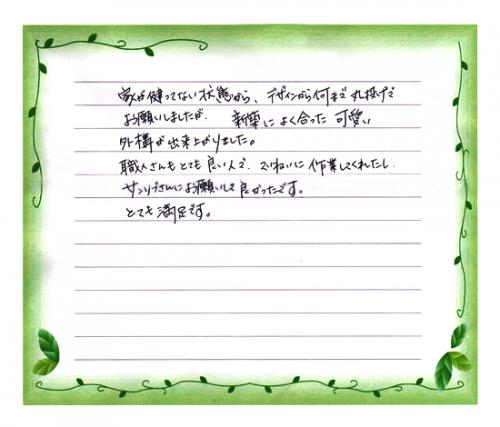 家が建ってない状態から、デザインから何まで丸投げで
お願いしましたが、新築によく合った可愛い
外構が出来上がりました。
職人さんもとても良い人で、ていねいに作業してくれたし、
サンリブさんにお願いして良かったです。
とても満足です。